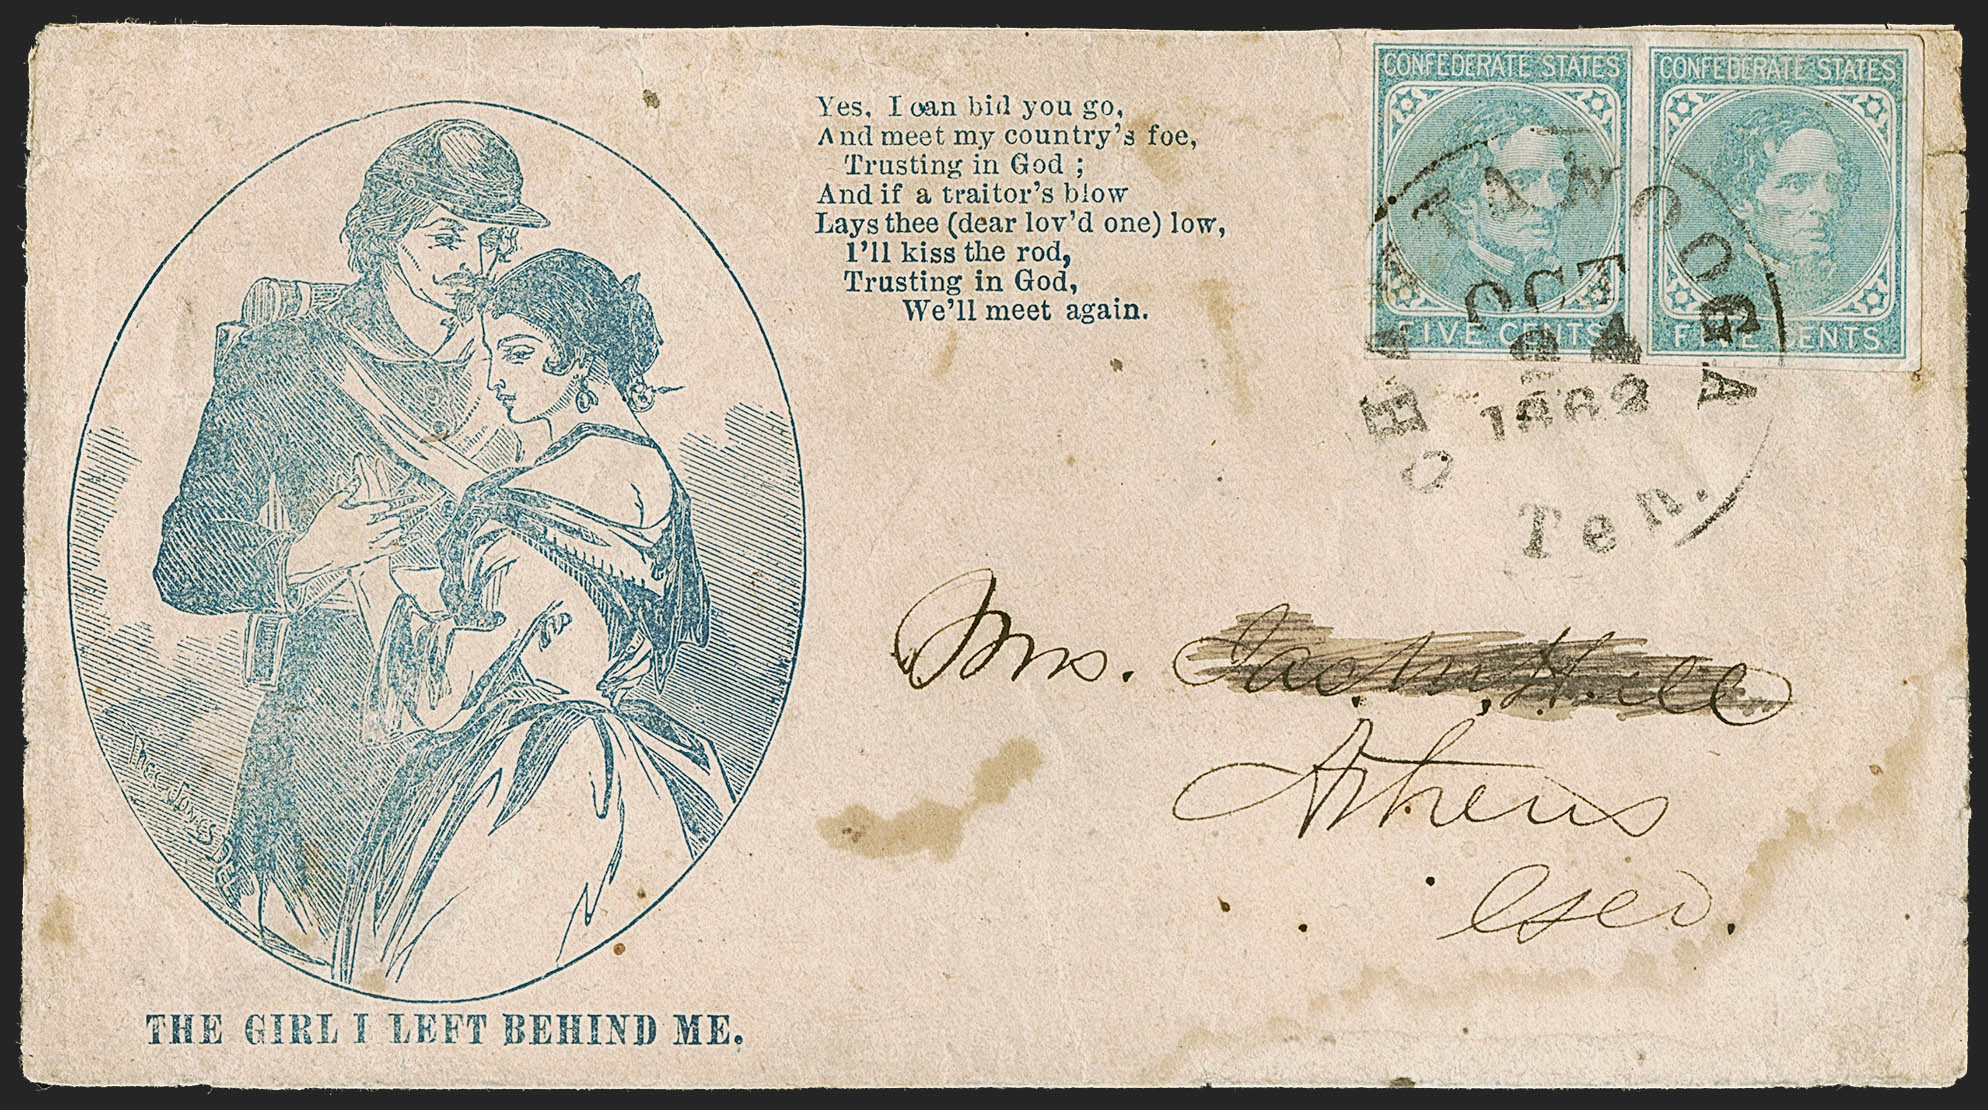 Yes, I can bid you go,
And meet my country's foe,
Trusting in God ;
And if a traitor's blow
Lays thee (dear lov'd one) low,
I'll kiss the rod,
Trusting in God,
We'll meet again.
CONFEDERATE STATES
FIVE CENTS
CONFEDERATE STATES
FIVE CENTS
CHATTANOOGA
OCT
24
1862
Ten.
Mrs. Hill
Athens
Geo.
Thac. Jones
THE GIRL I LEFT BEHIND ME.